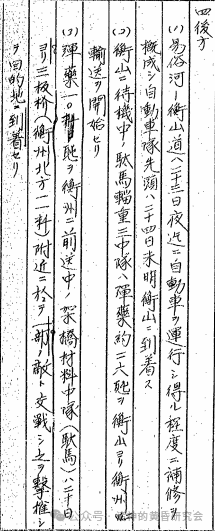 四後方
(1)易俗河―衡山道ハ二十三日夜迄ニ自動車ヲ運行シ得ル程度ニ補修ヲ
概成シ自動車隊先頭ハ二十四日未明衡山ニ到着ス
(2)衡山ニ待機中ノ駄馬輜重三中隊ハ弾薬約二六瓲ヲ衡山ヨリ衡州ニ
輸送ヲ開始セリ
(3)弾薬一〇瓲ヲ衡州ニ前送中ノ架橋材料中隊(駄馬)ハ二十日
ヨリ三板桥(衡州北方一二粁)附近ニ於テ一部ノ敵ト交戦シ之ヲ撃推シ
目的地ニ到着セリ
公众号
的黄昏研究会